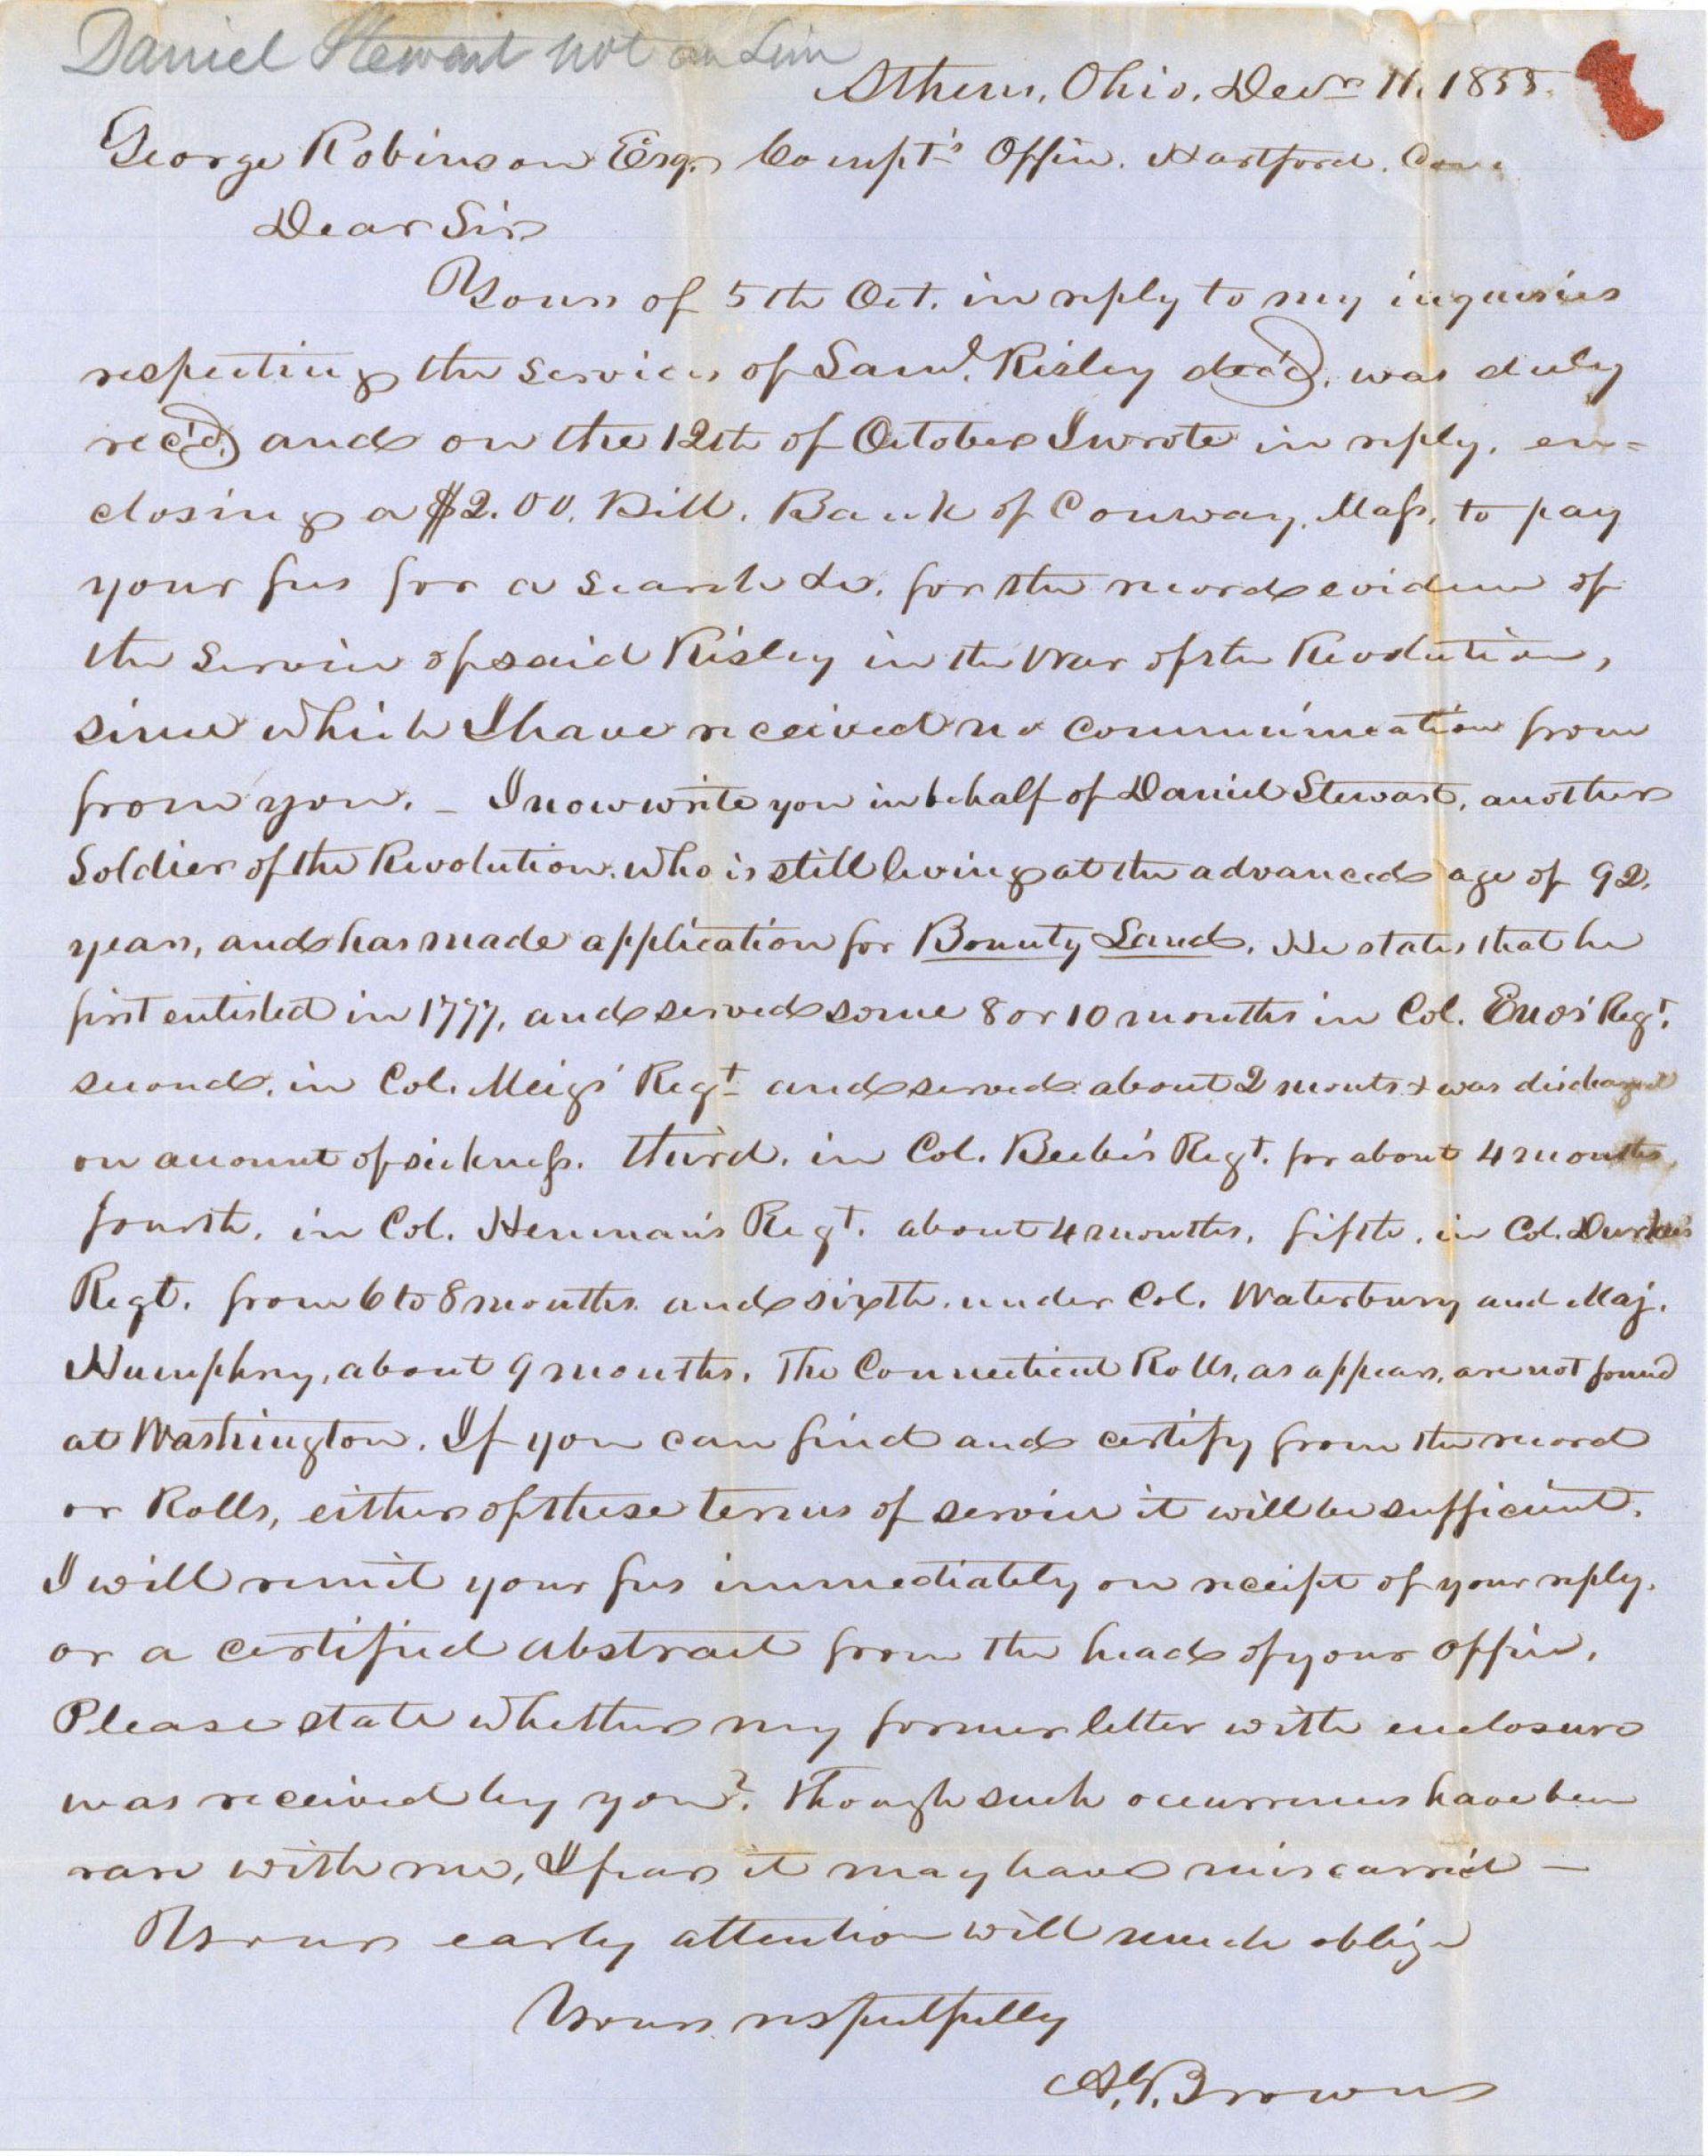 Daniel Stewart not on
Athens, Ohio, Decr 11. 1855.
George Robinson Esq. Compt's Office. Hartford. Con.
Dear Sir
Yours of 5th Oct. in reply to my inquiries
respecting the services of Saml. Risley dec'd, was duly
rec'd, and on the 12th of October I wrote in reply, en=
closing a $2.00. Bill. Bank of Conway, Mass, to pay
your fees for a search &c. for the record evidence of
the service of said Risley in the War of the Revolution,
since which I have received no communication from
from you. – I now write you in behalf of Daniel Stewart, another
Soldier of the Revolution. who is still living at the advanced age of 92.
years, and has made application for Bounty Land. He states that he
first enlisted in 1777, and served some 8 or 10 months in Col. Enos' Regt.
second, in Col. Meigs' Regt and served about 2 monts & was discharged
on account of sickness. third. in Col. Beebe's Regt. for about 4 months
fourth, in Col. Henman's Regt. about 4 months, fifth, in Col. Durkee's
Regt. from 6 to 8 months. and sixth. under Col. Waterbury and Maj.
Humphrey, about 9 months. The Connecticut Rolls, as appears, are not found
at Washington. If you can find and certify from the record
or Rolls, either of these terms of service it will be sufficient.
I will remit your fees immediately on receipt of your reply.
or a certified abstract from the head of your office.
Please state whether my former letter with enclosure
was received by you? Though such occurrences have been
rare with me, I fear it may have miscarried –
Your early attention will much oblige
Yours respectfully
A. G. Brown